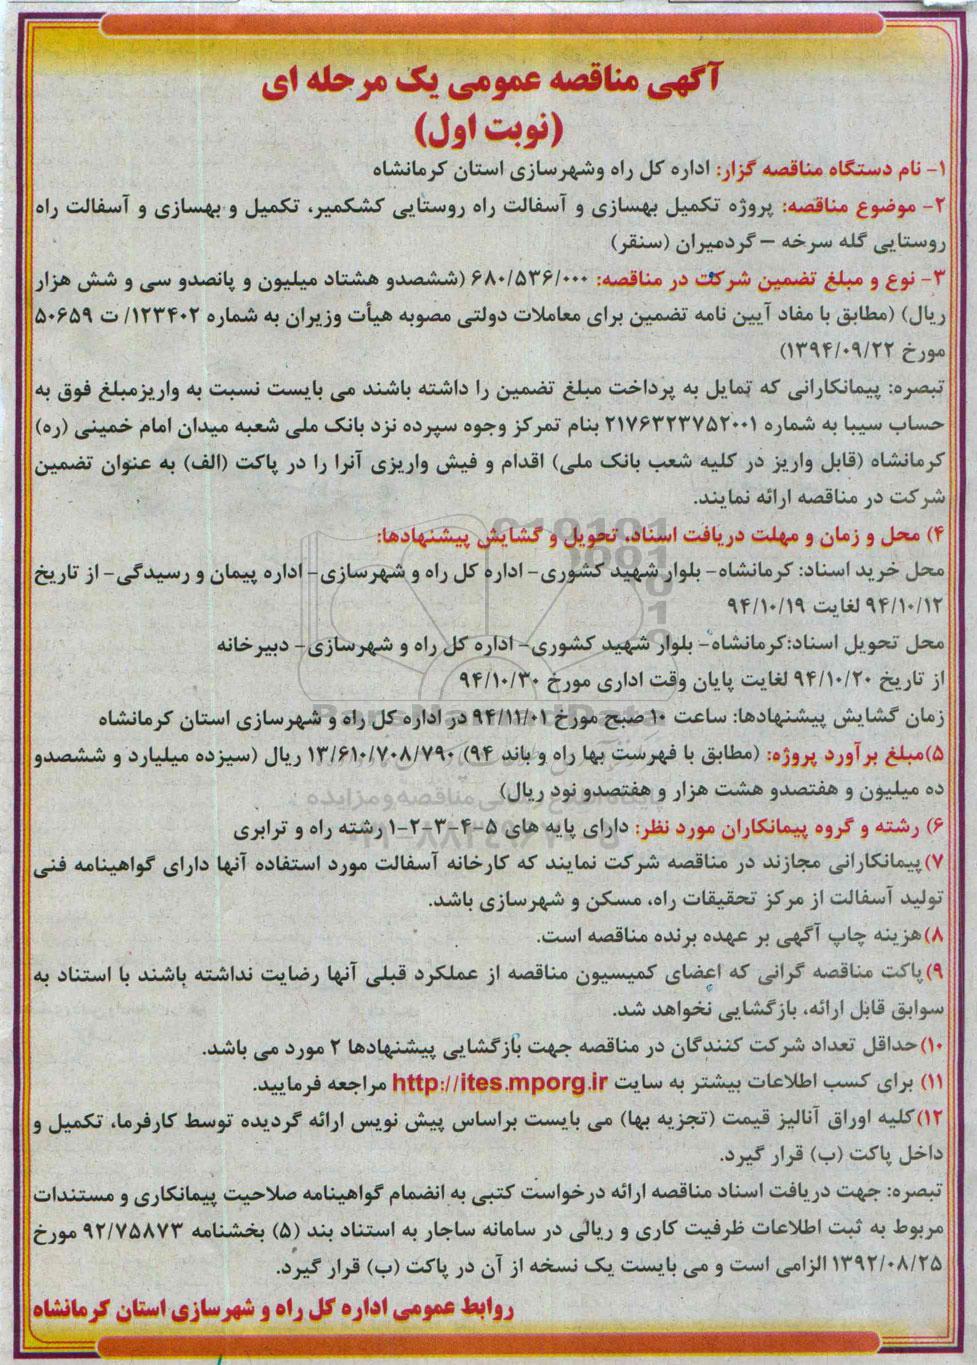 آگهی مناقصه عمومی یک مرحله ای
(نوبت اول)
۱- نام دستگاه مناقصه گزار: اداره کل راه وشهرسازی استان کرمانشاه
۲- موضوع مناقصه: پروژه تکمیل بهسازی و آسفالت راه روستایی کشکمیر، تکمیل و بهسازی و آسفالت راه
روستایی گله سرخه – گردمیران (سنقر)
۳- نوع و مبلغ تضمین شرکت در مناقصه: ۶۸۰/۵۳۶/۰۰۰ (ششصدو هشتاد میلیون و پانصدو سی و شش هزار
ریال) (مطابق با مفاد آیین نامه تضمین برای معاملات دولتی مصوبه هیأت وزیران به شماره ۱۲۳۴۰۲/ ت ۵۰۶۵۹
مورخ ۱۳۹۴/۰۹/۲۲)
تبصره: پیمانکارانی که تمایل به پرداخت مبلغ تضمین را داشته باشند می بایست نسبت به واریزمبلغ فوق به
حساب سیبا به شماره ۲۱۷۶۳۲۳۷۵۲۰۰۱ بنام تمرکز وجوه سپرده نزد بانک ملی شعبه میدان امام خمینی (ره)
کرمانشاه (قابل واریز در کلیه شعب بانک ملی) اقدام و فیش واریزی آنرا را در پاکت (الف) به عنوان تضمین
شرکت در مناقصه ارائه نمایند.
۴) محل و زمان و مهلت دریافت اسناد، تحویل و گشایش پیشنهادها:
محل خرید اسناد: کرمانشاه- بلوار شهید کشوری- اداره کل راه و شهرسازی- اداره پیمان و رسیدگی- از تاریخ
۹۴/۱۰/۱۲ لغایت ۹۴/۱۰/۱۹
محل تحویل اسناد:کرمانشاه- بلوار شهید کشوری- اداره کل راه و شهرسازی- دبیرخانه
از تاریخ ۹۴/۱۰/۲۰ لغایت پایان وقت اداری مورخ ۹۴/۱۰/۳۰
زمان گشایش پیشنهادها: ساعت ۱۰ صبح مورخ ۹۴/۱۱/۰۱ در اداره کل راه و شهرسازی استان کرمانشاه
۵)مبلغ برآورد پروژه: (مطابق با فهرست بها راه و باند ۹۴) ۱۳/۶۱۰/۷۰۸/۷۹۰ ریال (سیزده میلیارد و ششصدو
ده میلیون و هفتصدو هشت هزار و هفتصدو نود ریال)
۶) رشته و گروه پیمانکاران مورد نظر: دارای پایه های ۵-۴-۳-۲-۱ رشته راه و ترابری
۷)پیمانکارانی مجازند در مناقصه شرکت نمایند که کارخانه آسفالت مورد استفاده آنها دارای گواهینامه فنی
تولید آسفالت از مرکز تحقیقات راه، مسکن و شهرسازی باشد.
۸)هزینه چاپ آگهی بر عهده برنده مناقصه است.
۹)پاکت مناقصه گرانی که اعضای کمیسیون مناقصه از عملکرد قبلی آنها رضایت نداشته باشند با استناد به
سوابق قابل ارائه، بازگشایی نخواهد شد.
۱۰)حداقل تعداد شرکت کنندگان در مناقصه جهت بازگشایی پیشنهادها ۲ مورد می باشد.
۱۱) برای کسب اطلاعات بیشتر به سایت http://ites.mporg.ir مراجعه فرمایید.
۱۲)کلیه اوراق آنالیز قیمت (تجزیه بها) می بایست براساس پیش نویس ارائه گردیده توسط کارفرما، تکمیل و
داخل پاکت (ب) قرار گیرد.
تبصره: جهت دریافت اسناد مناقصه ارائه درخواست کتبی به انضمام گواهینامه صلاحیت پیمانکاری و مستندات
مربوط به ثبت اطلاعات ظرفیت کاری و ریالی در سامانه ساجار به استناد بند (۵) بخشنامه ۹۲/۷۵۸۷۳ مورخ
۱۳۹۲/۰۸/۲۵ الزامی است و می بایست یک نسخه از آن در پاکت (ب) قرار گیرد.
روابط عمومی اداره کل راه و شهرسازی استان کرمانشاه